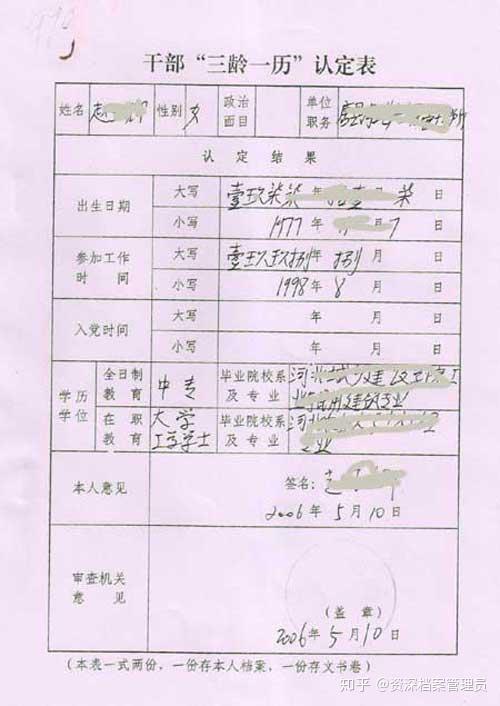 干部“三龄一历”认定表
姓名 赵 性别 女 政治面目 单位职务
认定结果
出生日期 大写 壹玖柒柒 年 柒 日
小写 1977 年 7 日
参加工作时间 大写 壹玖玖捌 年 捌 月 日
小写 1998 年 8 月 日
入党时间 大写 年 月 日
小写 年 月 日
学历学位 全日制教育 中专 毕业院校系及专业 河北 业
在职教育 大学 工学学士 毕业院校系及专业 河北 专业
本人意见 签名：赵
2006 年 5 月 10 日
审查机关意见 (盖章)
2006 年 5 月 10 日
(本表一式两份，一份存本人档案，一份存文书卷)
知乎 @资深档案管理员